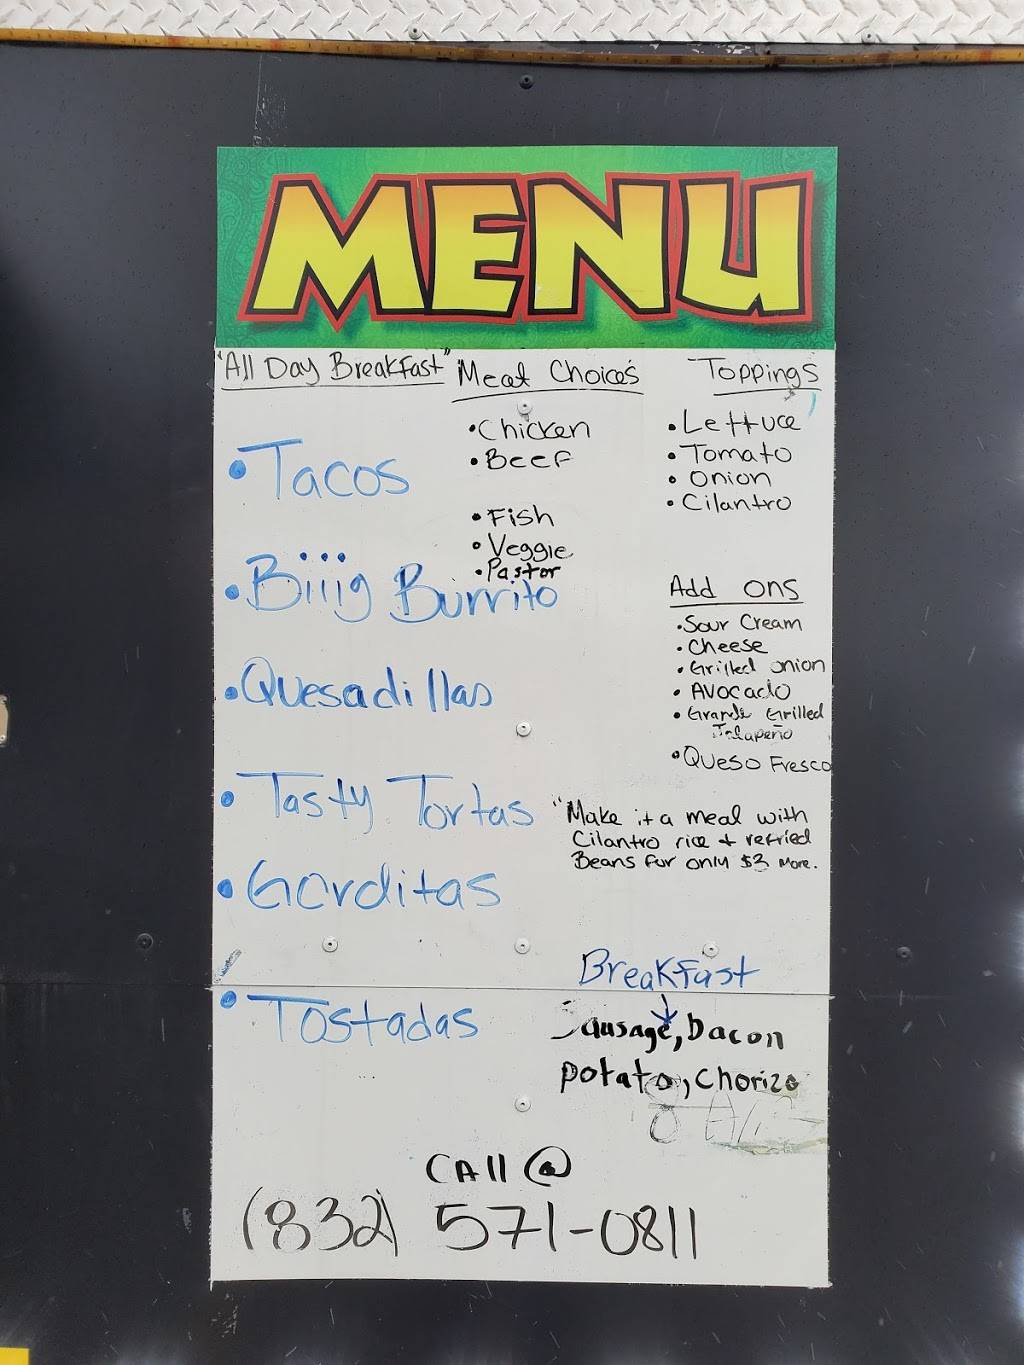 MENU
"All Day Breakfast"
• Tacos
• Biiig Burrito
• Quesadillas
• Tasty Tortas
• Gorditas
• Tostadas
Meat Choices
• Chicken
• Beef
• Fish
• Veggie
• Pastor
Toppings
• Lettuce
• Tomato
• Onion
• Cilantro
Add ons
• Sour Cream
• Cheese
• Grilled onion
• Avocado
• Grilled
Jalapeño
• Queso Fresco
"Make it a meal with
Cilantro rice + refried
Beans for only $3 more.
Breakfast
Sausage, bacon
potato, chorizo
Call @
(832) 571-0811